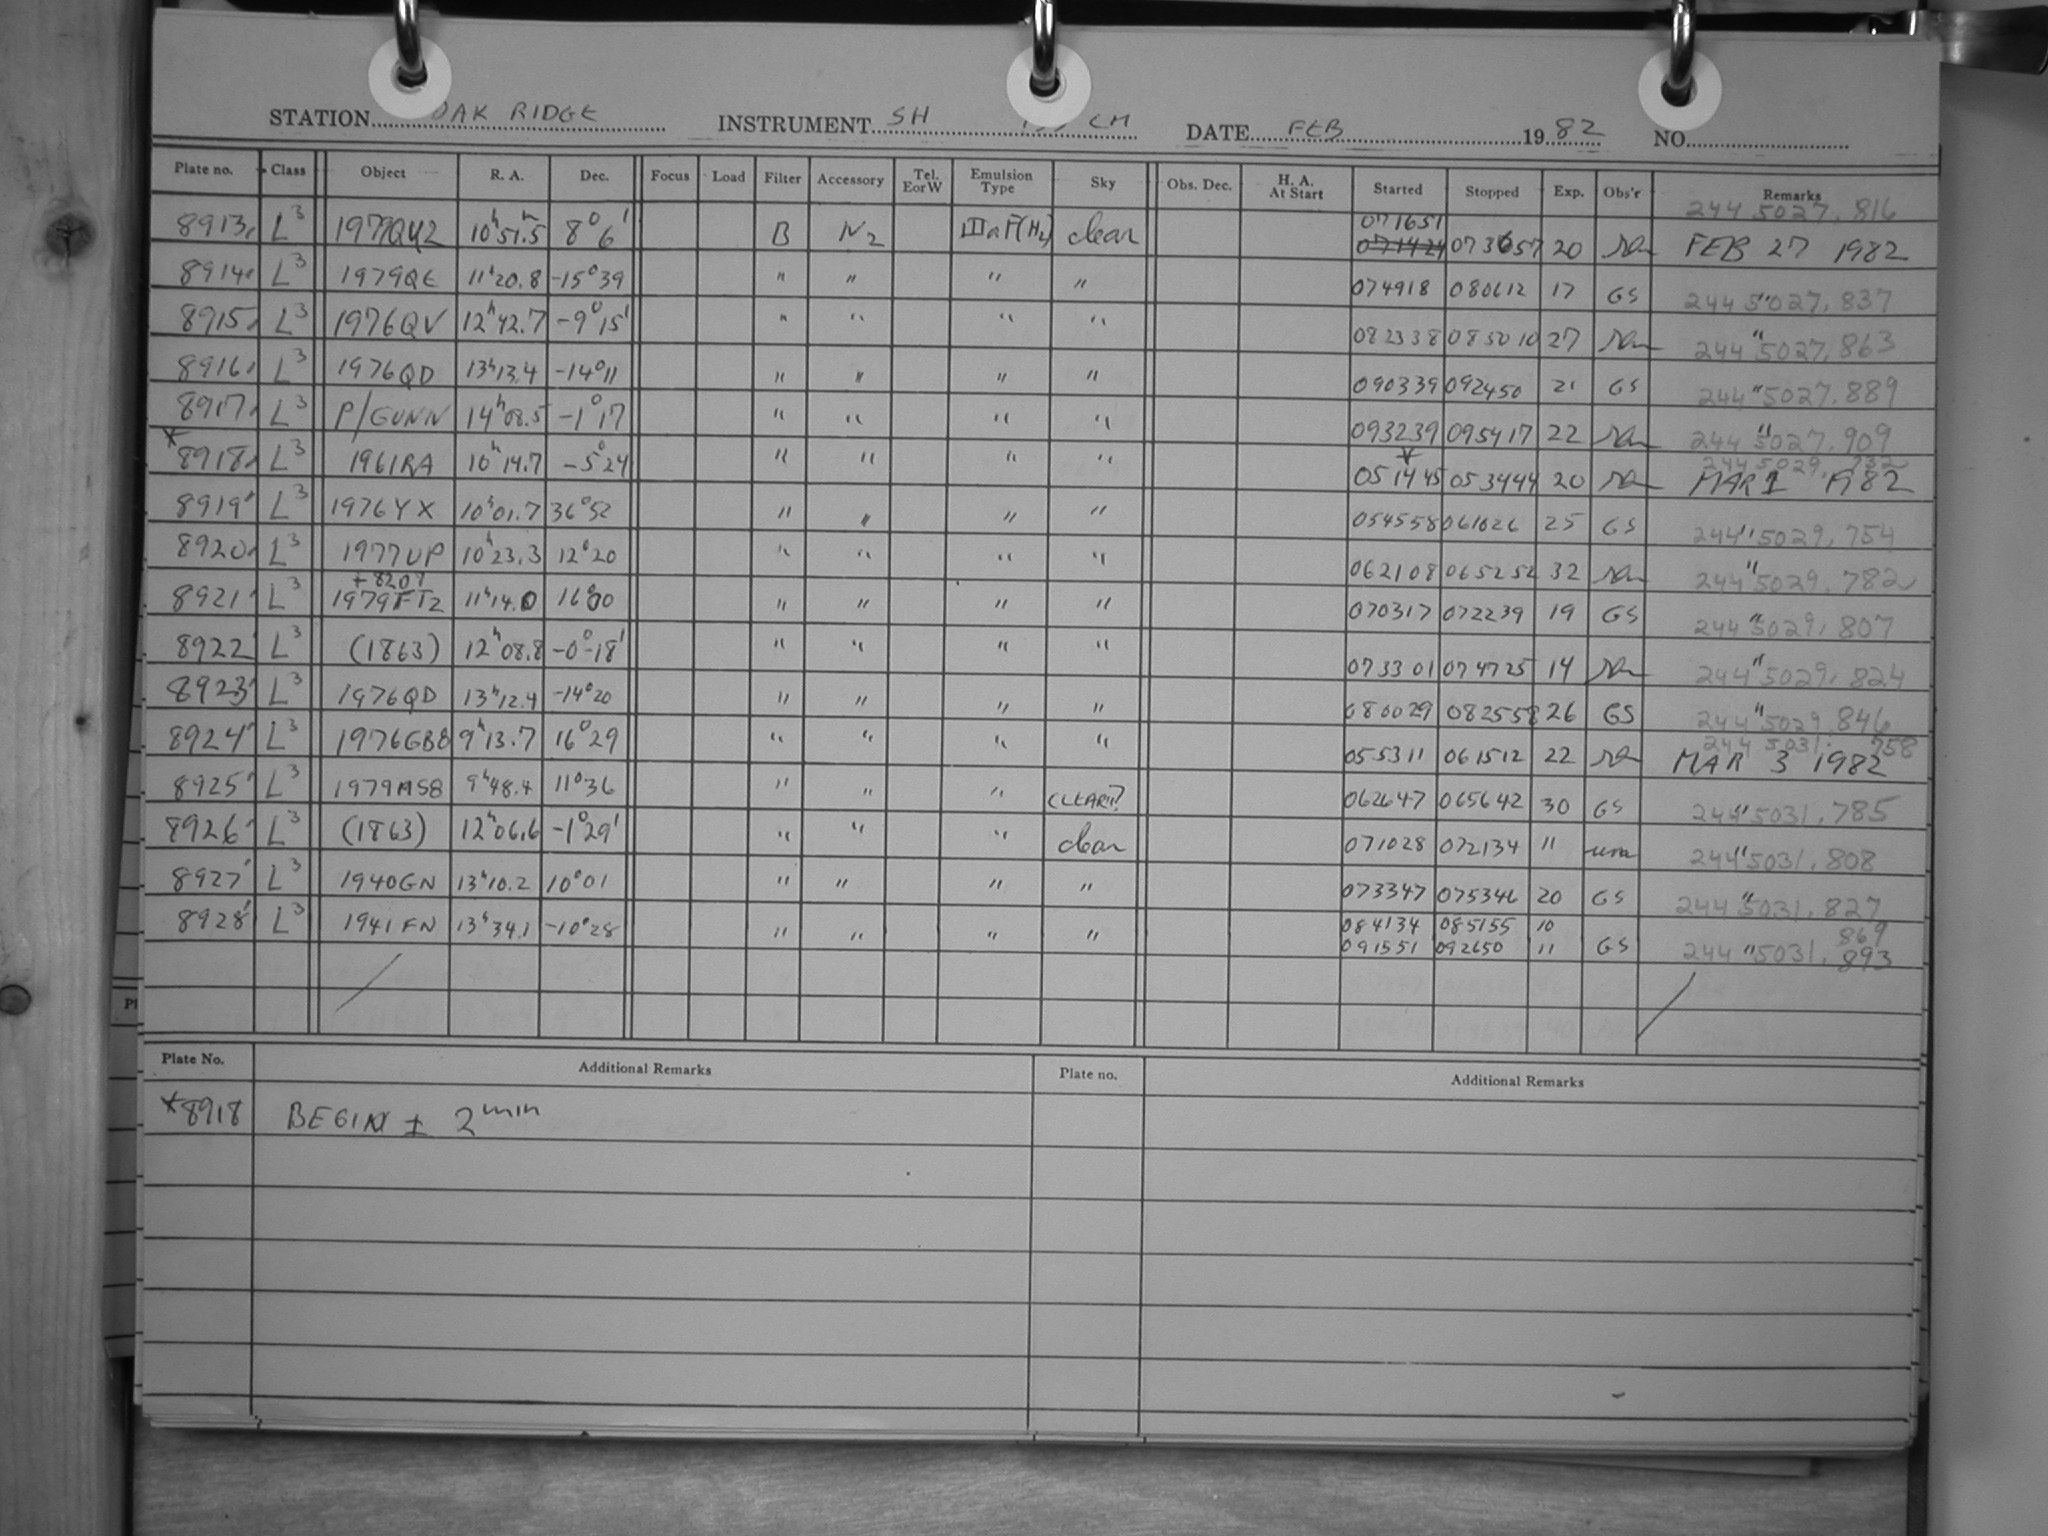 STATION OAK RIDGE INSTRUMENT SH CM DATE FEB 1982 NO.
Plate no. Class Object R. A. Dec. Focus Load Filter Accessory Tel. E or W Emulsion Type Sky Obs. Dec. H. A. At Start Started Stopped Exp. Obs'r Remarks
244 5027.816
8913 L3 1979QU2 10h51.5 8°6' B N2 IIIaF(H2) clear 071651 073657 20 FEB 27 1982
8914 L3 1979QE 11h20.8 -15°39 " " " " 074918 080612 17 GS 244 5027.837
8915 L3 1976QV 12h42.7 -9°15' " " " " 082338 085010 27 244 " 5027.863
8916 L3 1976QD 13h13.4 -14°11 " " " " 090339 092450 21 GS 244 " 5027.889
8917 L3 P/GUNN 14h08.5 -1°17 " " " " 093239 095417 22 244 " 5027.909
244 5029.732
*8918 L3 1961RA 10h14.7 -5°24 " " " " *051445 053444 20 MAR 1 1982
8919 L3 1976YX 10h01.7 36°52 " " " " 054558 061026 25 GS 244 " 5029.754
8920 L3 1977UP 10h23.3 12°20 " " " " 062108 065252 32 244 " 5029.782
+8207
8921 L3 1979FT2 11h14.0 16°00 " " " " 070317 072239 19 GS 244 " 5029.807
8922 L3 (1863) 12h08.8 -0°-18' " " " " 073301 074725 14 244 " 5029.824
8923 L3 1976QD 13h12.4 -14°20 " " " " 080029 082558 26 GS 244 " 5029.846
244 5031.758
8924 L3 1976GB8 9h13.7 16°29 " " " " 055311 061512 22 MAR 3 1982
8925 L3 1979MS8 9h48.4 11°36 " " " CLEAR? 062647 065642 30 GS 244 " 5031.785
8926 L3 (1863) 12h06.6 -1°29' " " " clear 071028 072134 11 244 " 5031.808
8927 L3 1940GN 13h10.2 10°01 " " " " 073347 075346 20 GS 244 " 5031.827
8928 L3 1941FN 13h34.1 -10°28 " " " " 084134 085155 10 869
091551 092650 11 GS 244 " 5031.893
Plate No. Additional Remarks Plate no. Additional Remarks
*8918 BEGIN ± 2min